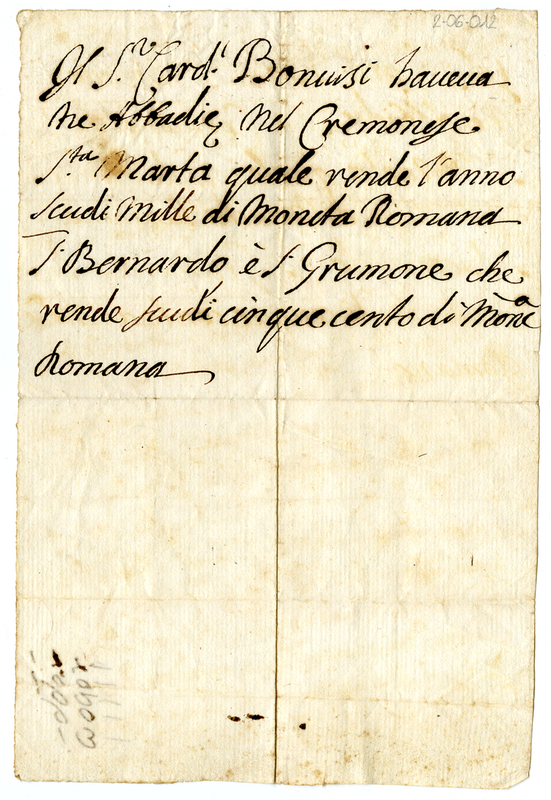 2-06-012
Il S.r Card.l Bonuisi haueua
tre Abbadie, nel Cremonese
S.ta Marta quale rende l'anno
scudi mille di Moneta Romana
S. Bernardo è S. Grumone che
rende scudi cinquecento di Mon.a
Romana